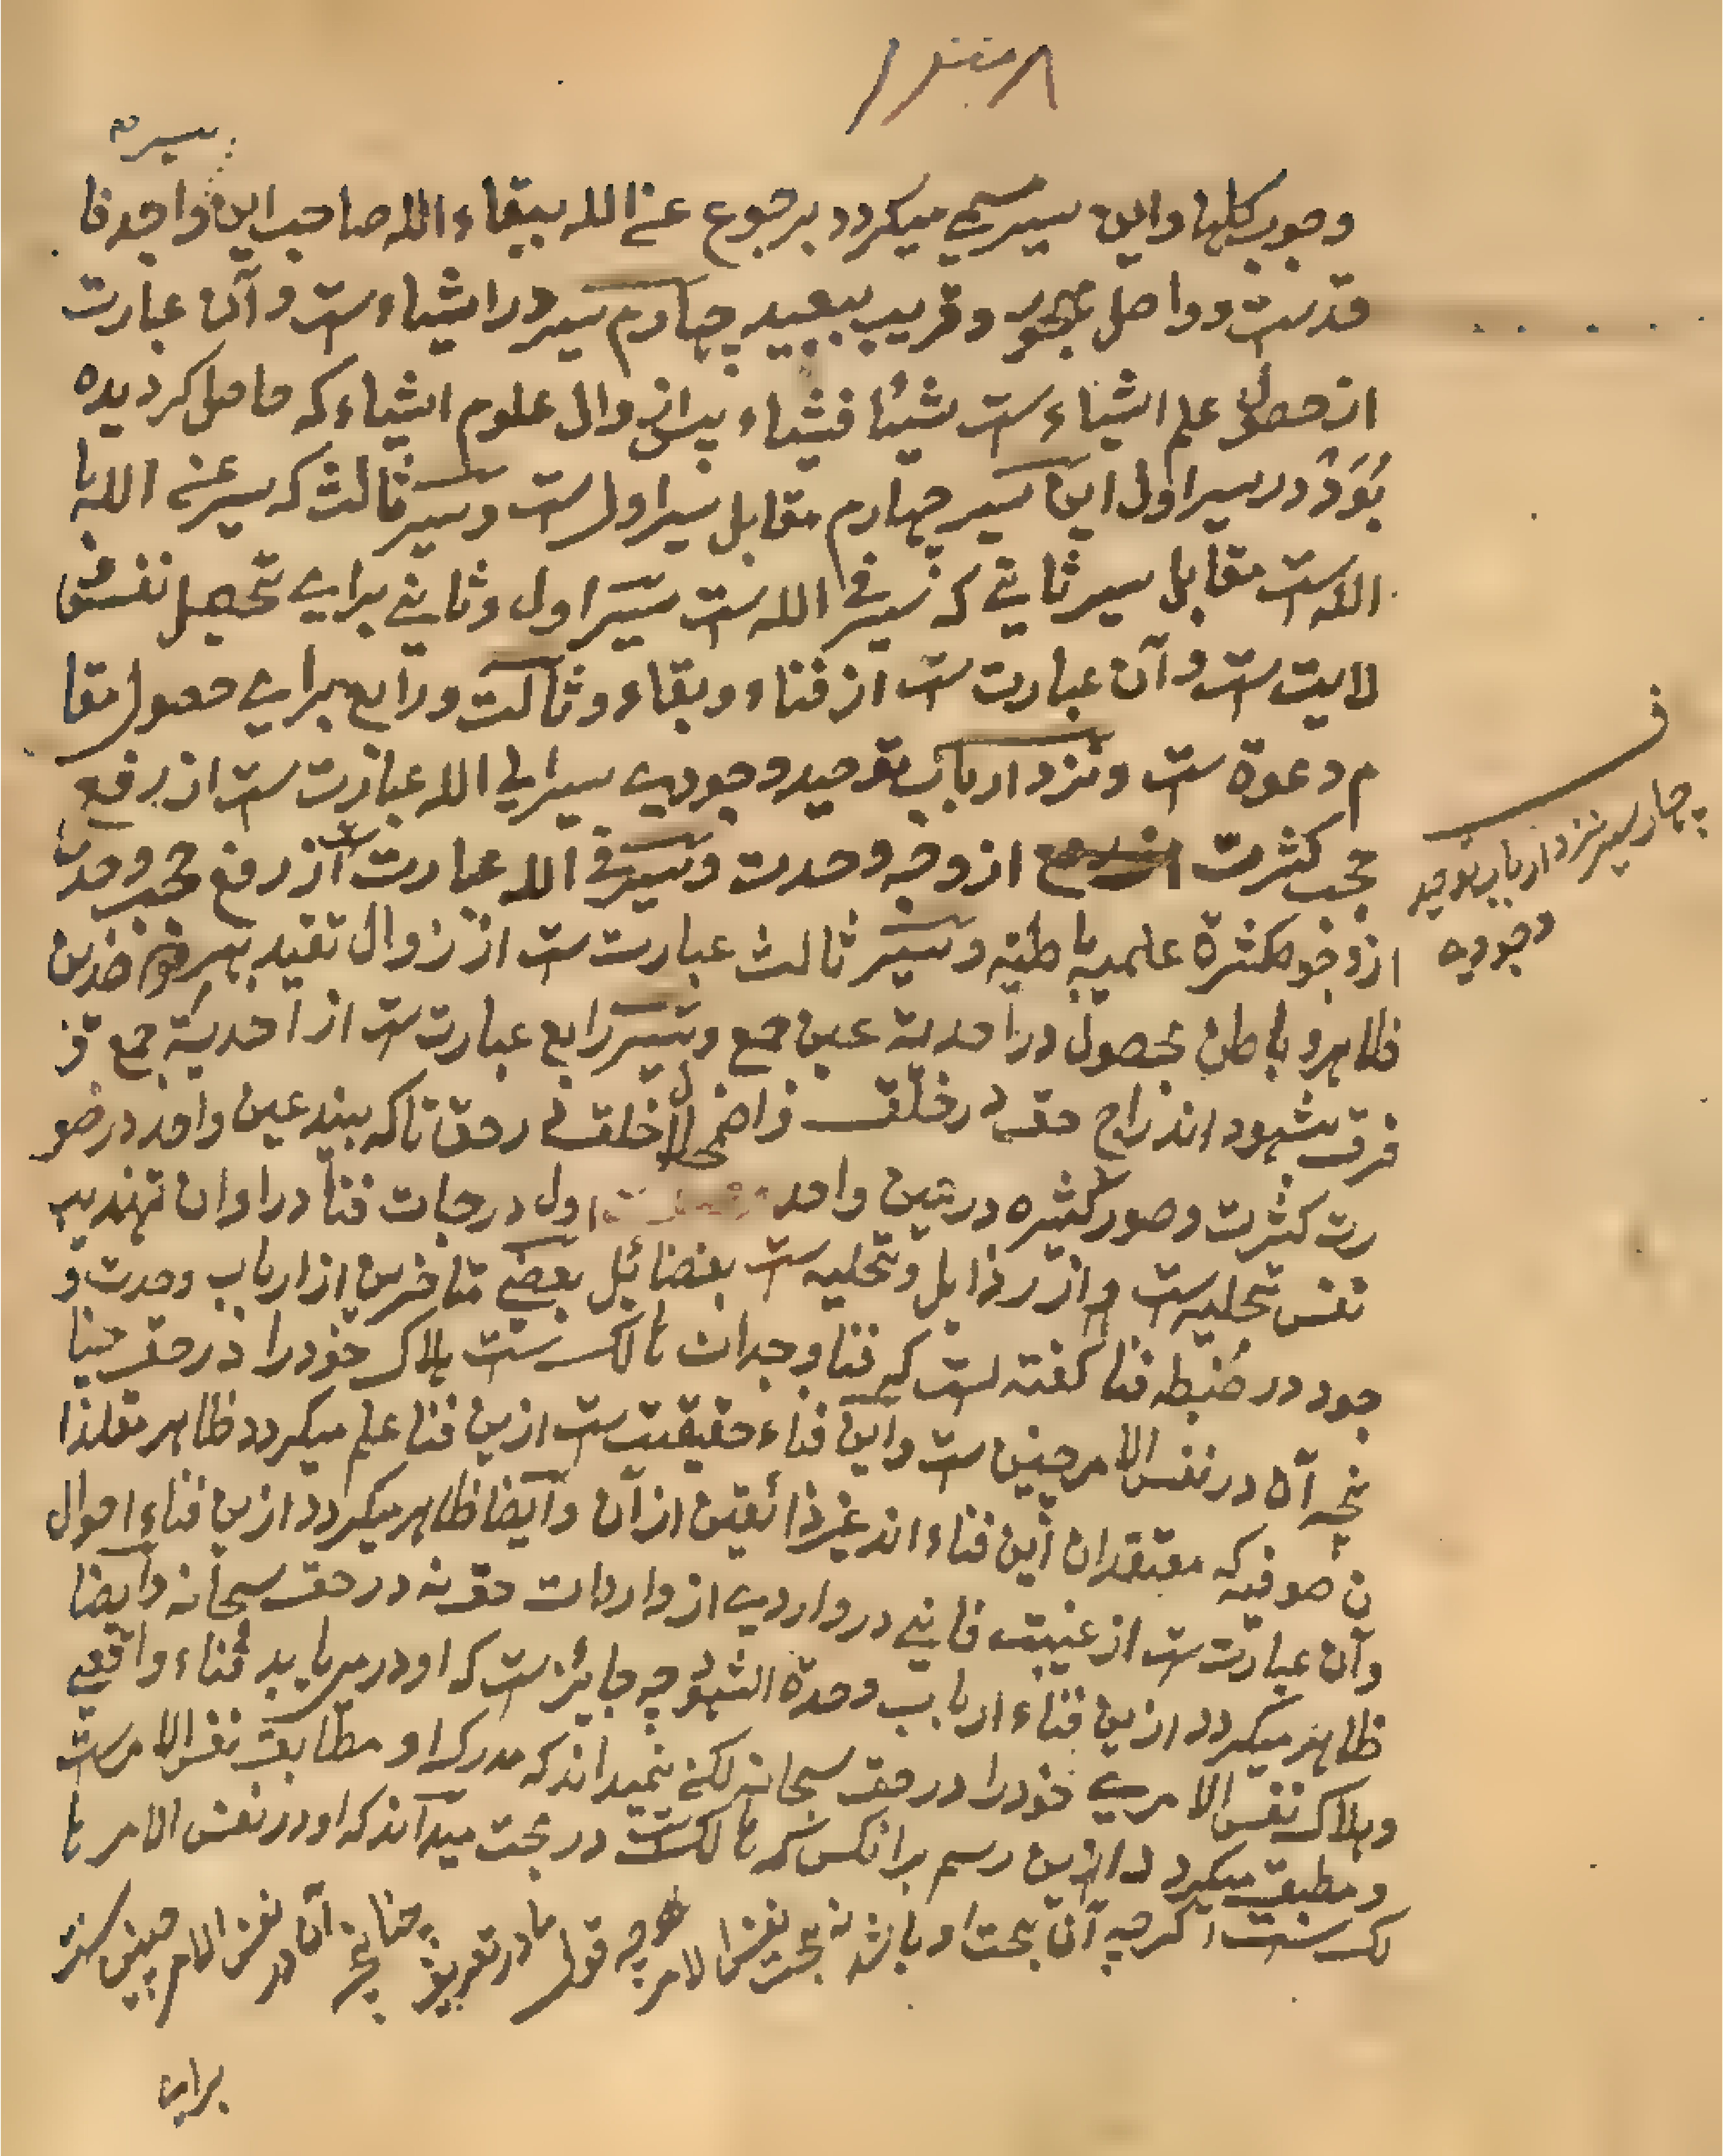 سیر
وجوب کلها واین سیر مسمی میکردد برجوع عن الله ببقاء الله صاحب این واجد فا
قدست وواصل مهجور وقریب ببعید چهارم سیر در اشیاءست وآن عبارت
از حصول علم اشیاءست شیئا فشیاء پس از زوال علوم اشیاء که حاصل کردیده
بود در سیر اول این سیر چهارم مقابل سیر اول ست وسیر ثالث که سیر عن الله با
الله ست مقابل سیر ثانی که سیر فی الله ست سیر اول وثانی برای تحصیل نفس و
لایت ست وآن عبارت ست از فناء وبقاء وثالث ورابع برای حصول مقا
م دعوة ست ونزد ارباب توحید وجودی سیر الی الله عبارت ست از رفع
حجب کثرت از وجه وحدت وسیر فی الله عبارت ست از رفع حجب وحدت
از وجوه کثرة علمیه باطنه وسیر ثالث عبارت ست از زوال تقید بهر ضدین
ظاهر وباطن بحصول در احدیة عین جمع وسیر رابع عبارت ست از احدیة جمع و
فرق بشهود اندراج حق در خلق واضمحلال خلق در حق تا که بیند عین واحد در صو
رت کثرت وصور کثیره در عین واحد اول درجات فنا در اوان تهذیب
نفس تخلیه ست از رذایل وتحلیه ست بفضائل بعضی متاخرین از ارباب وحدت و
جود در ضبطه فنا کفته است که فنا وجدان هالک ست هلاک خود را در حق چنا
نچه آن در نفس الامر چنین ست واین فناء حقیقیت ست ازین فنا علم میکردد ظاهر مقلدا
ن صوفیه که معتقدان این فناء اند غیر ذائقین از آن وایضا ظاهر میکردد ازین فناء احوال
وآن عبارت ست از غیبت فانی در واردی از واردات حق نه در حق سبحانه وایضا
ظاهر میکردد ازین فناء ارباب وحدة الشهود چه جایزست که او درمییابد فناء واقعی
وهلاک نفس الامری خود را در حق سبحانه لکن نمیداند که مدرک او مطابق نفس الامرست
ومطبق میکردد این رسم بر انکس که هالک ست در بحت میداند که او در نفس الامر ها
لک ست اکرچه آن بحت او باشد نه بحت نفس الامر چه قول ما در تعریف چنانچه آن در نفس الامر چنین ست
برای
ف
چهار سیر نزد ارباب توحید
وجودیه